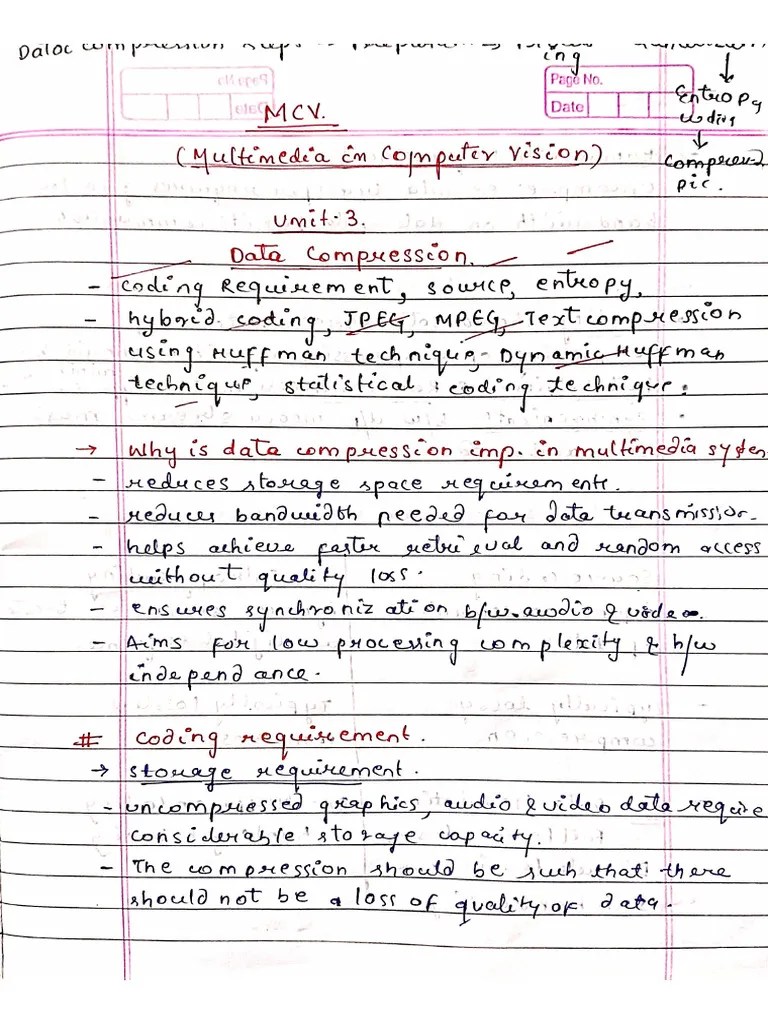 Data compression steps :- Preparation → Process
ing
Page No.
Date
Entropy
coding
compressed
pic.
MCV.
(Multimedia in computer vision)
Unit-3.
Data Compression.
- coding Requirement, source, entropy,
- hybrid coding, JPEG, MPEG, Text compression
using Huffman technique, Dynamic Huffman
technique, statistical coding technique.
→ Why is data compression imp. in multimedia system
- reduces storage space requirements.
- reduces bandwidth needed for data transmission.
- helps achieve faster retrieval and random access
without quality loss.
- ensures synchronization b/w audio & video.
- Aims for low processing complexity & h/w
independance.
# coding requirement.
→ storage requirement.
- uncompressed graphics, audio & video data require
considerable storage capacity.
- The compression should be such that there
should not be a loss of quality of data.